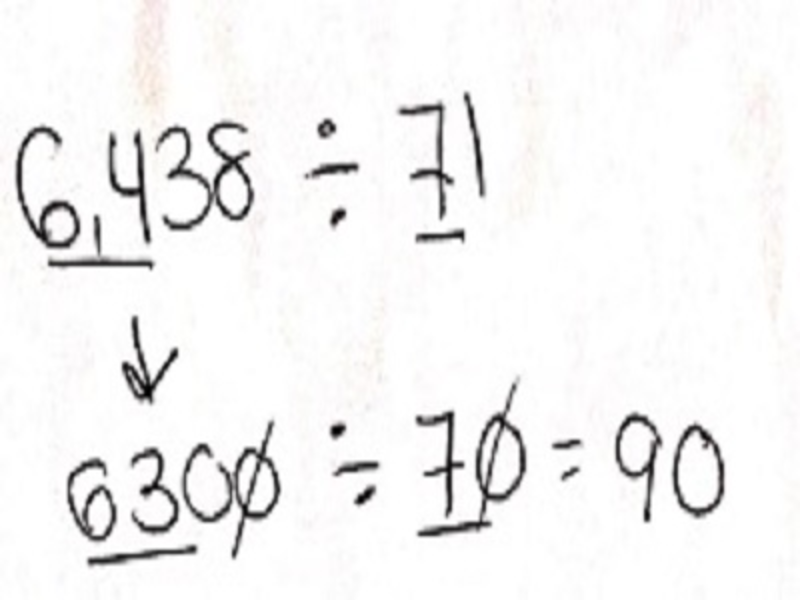 6,438 ÷ 71
↓
6300 ÷ 70 = 90